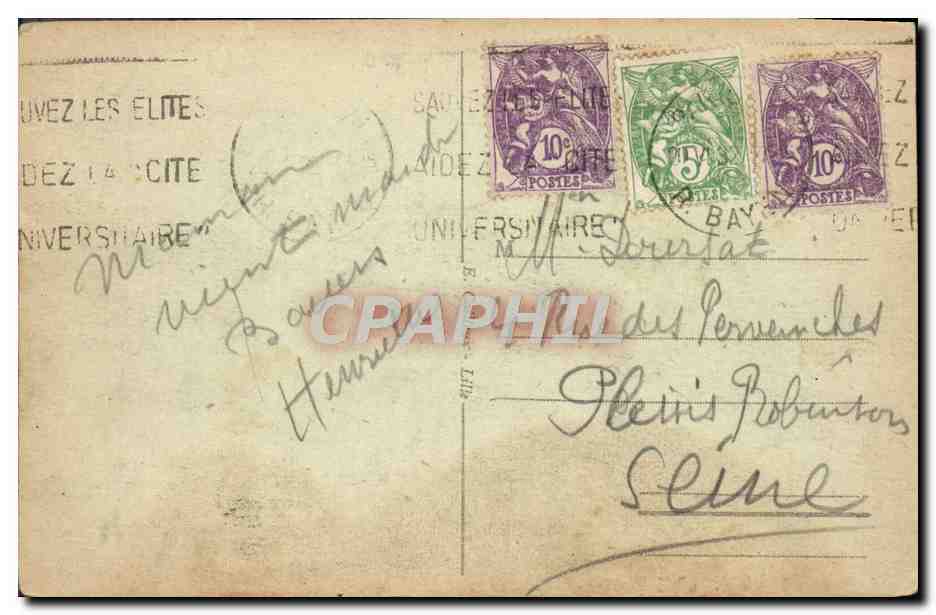 UVEZ LES ELITES
DEZ LA CITE
NIVERSITAIRE"
SAUVEZ LES ELITE
AIDEZ LA CITE
UNIVERSITAIRE"
10c
POSTES
5c
POSTES
10c
POSTES
BAY
Maman
vient mardi
Baisers
M
Rue des Pervenches
Plessis Robinson
Seine
Lille
CPAPHIL